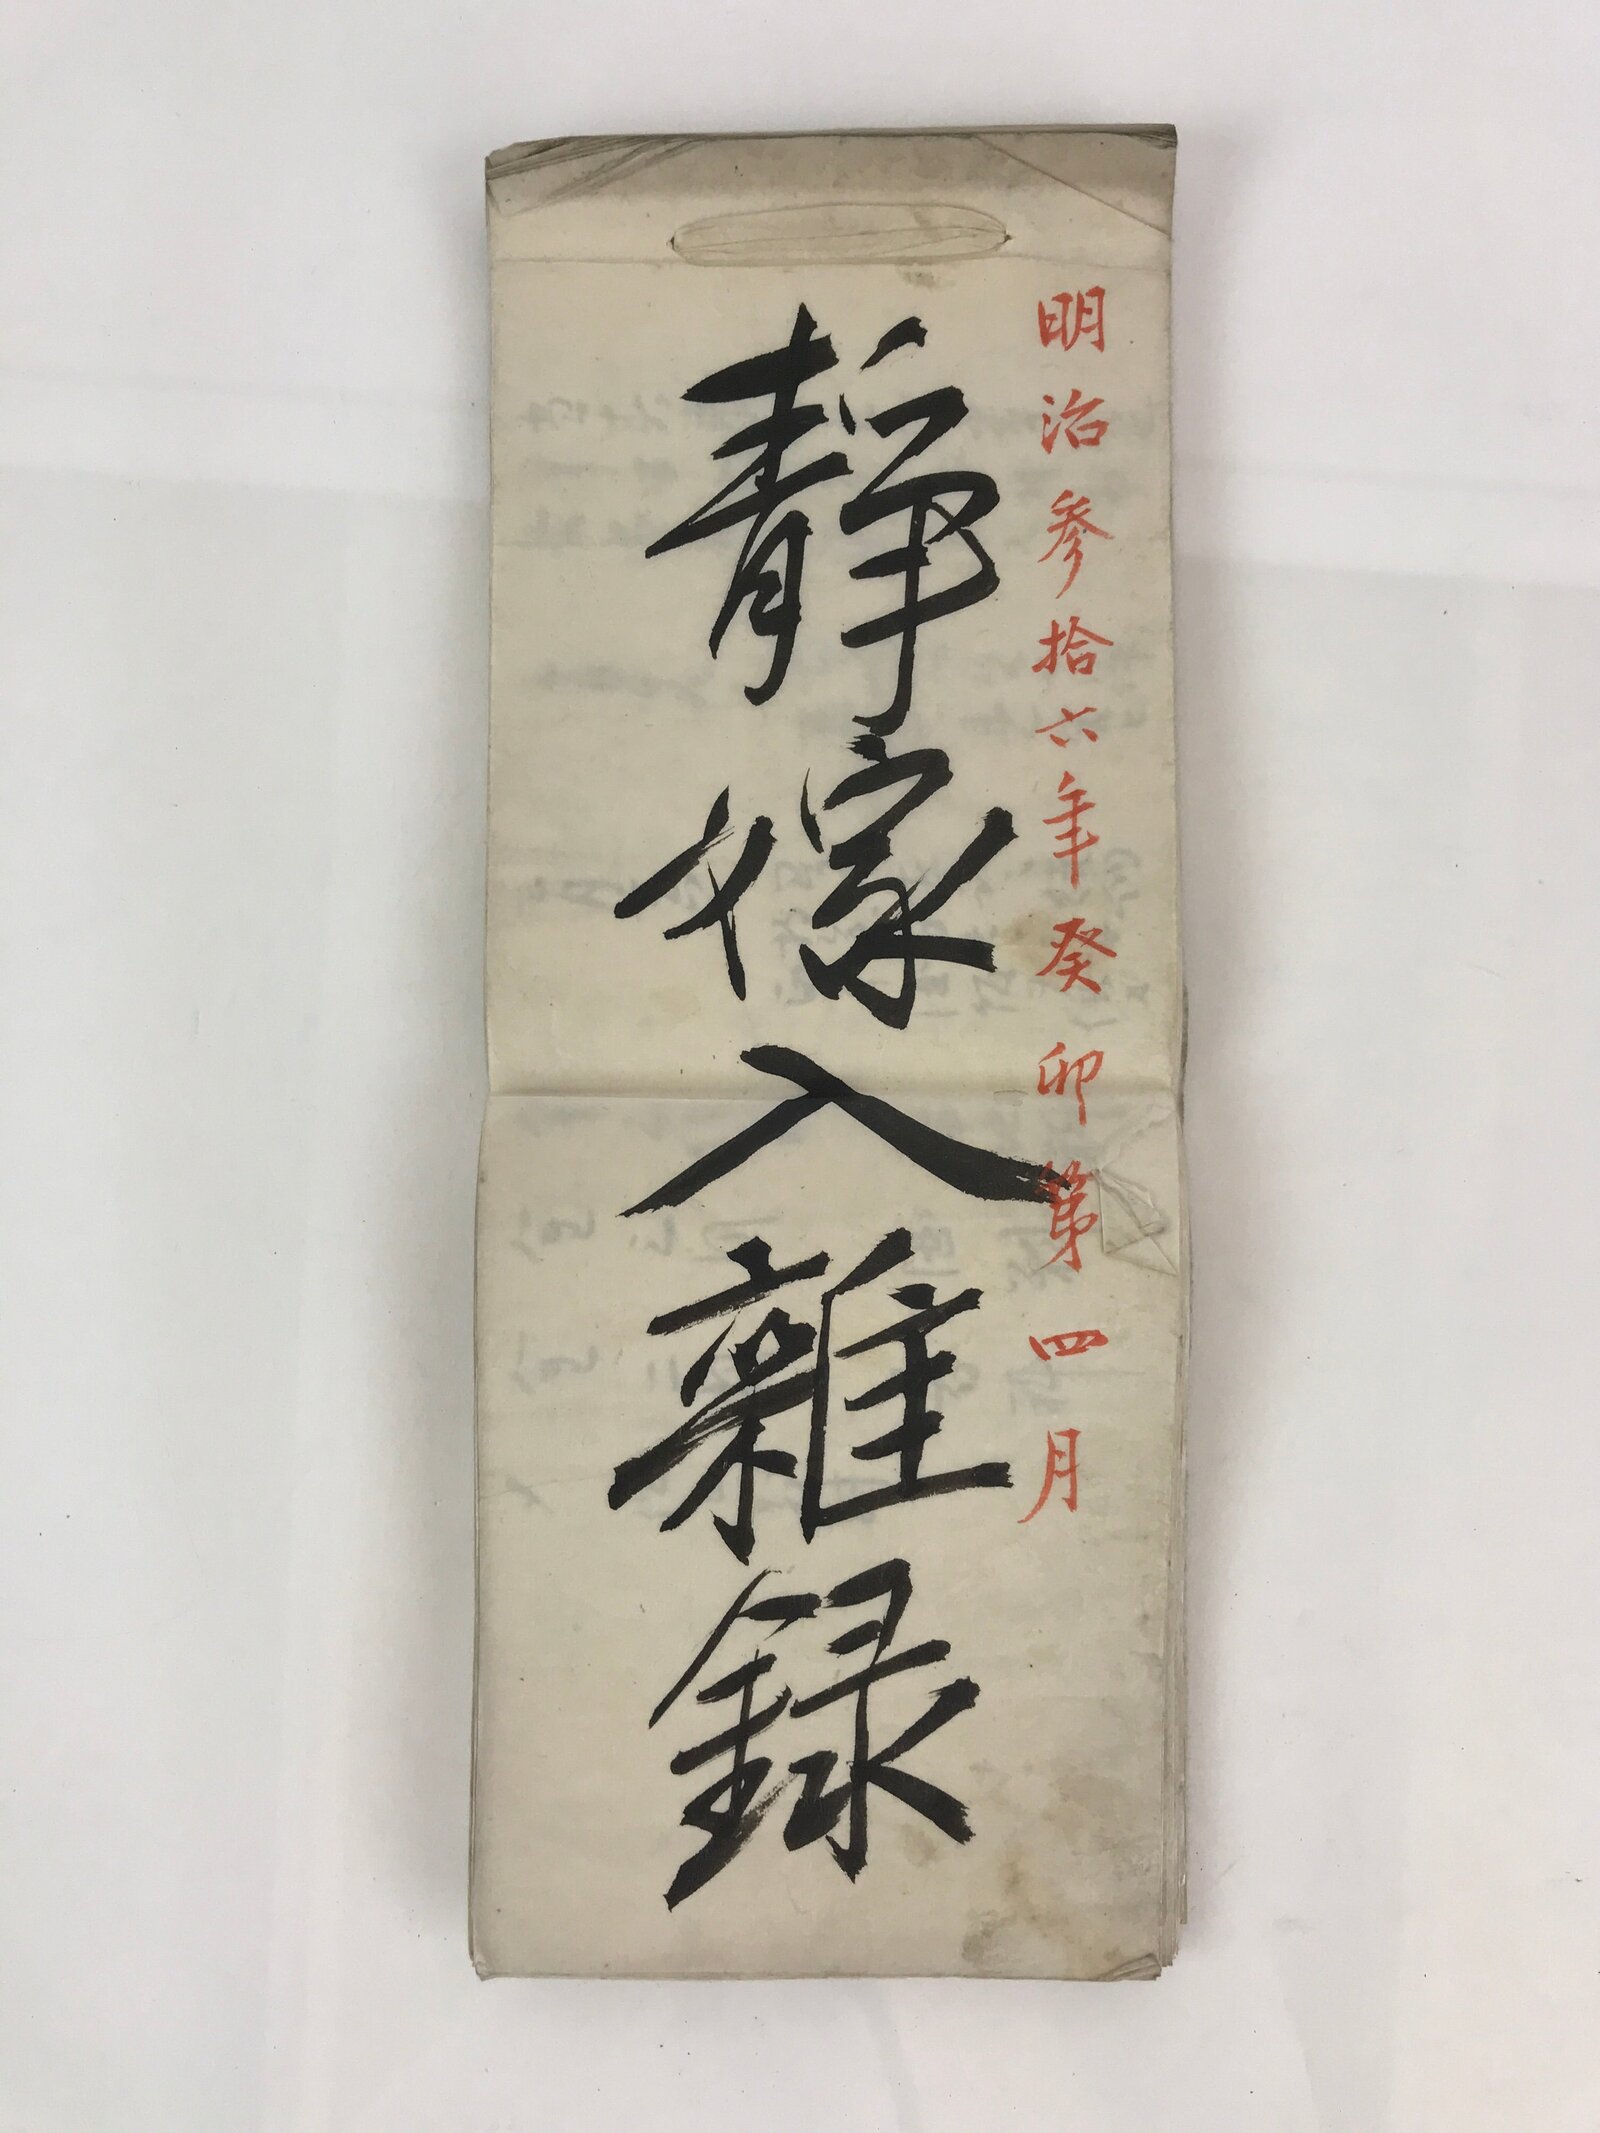 明治参拾六年癸卯第四月
靜嫁入雜録